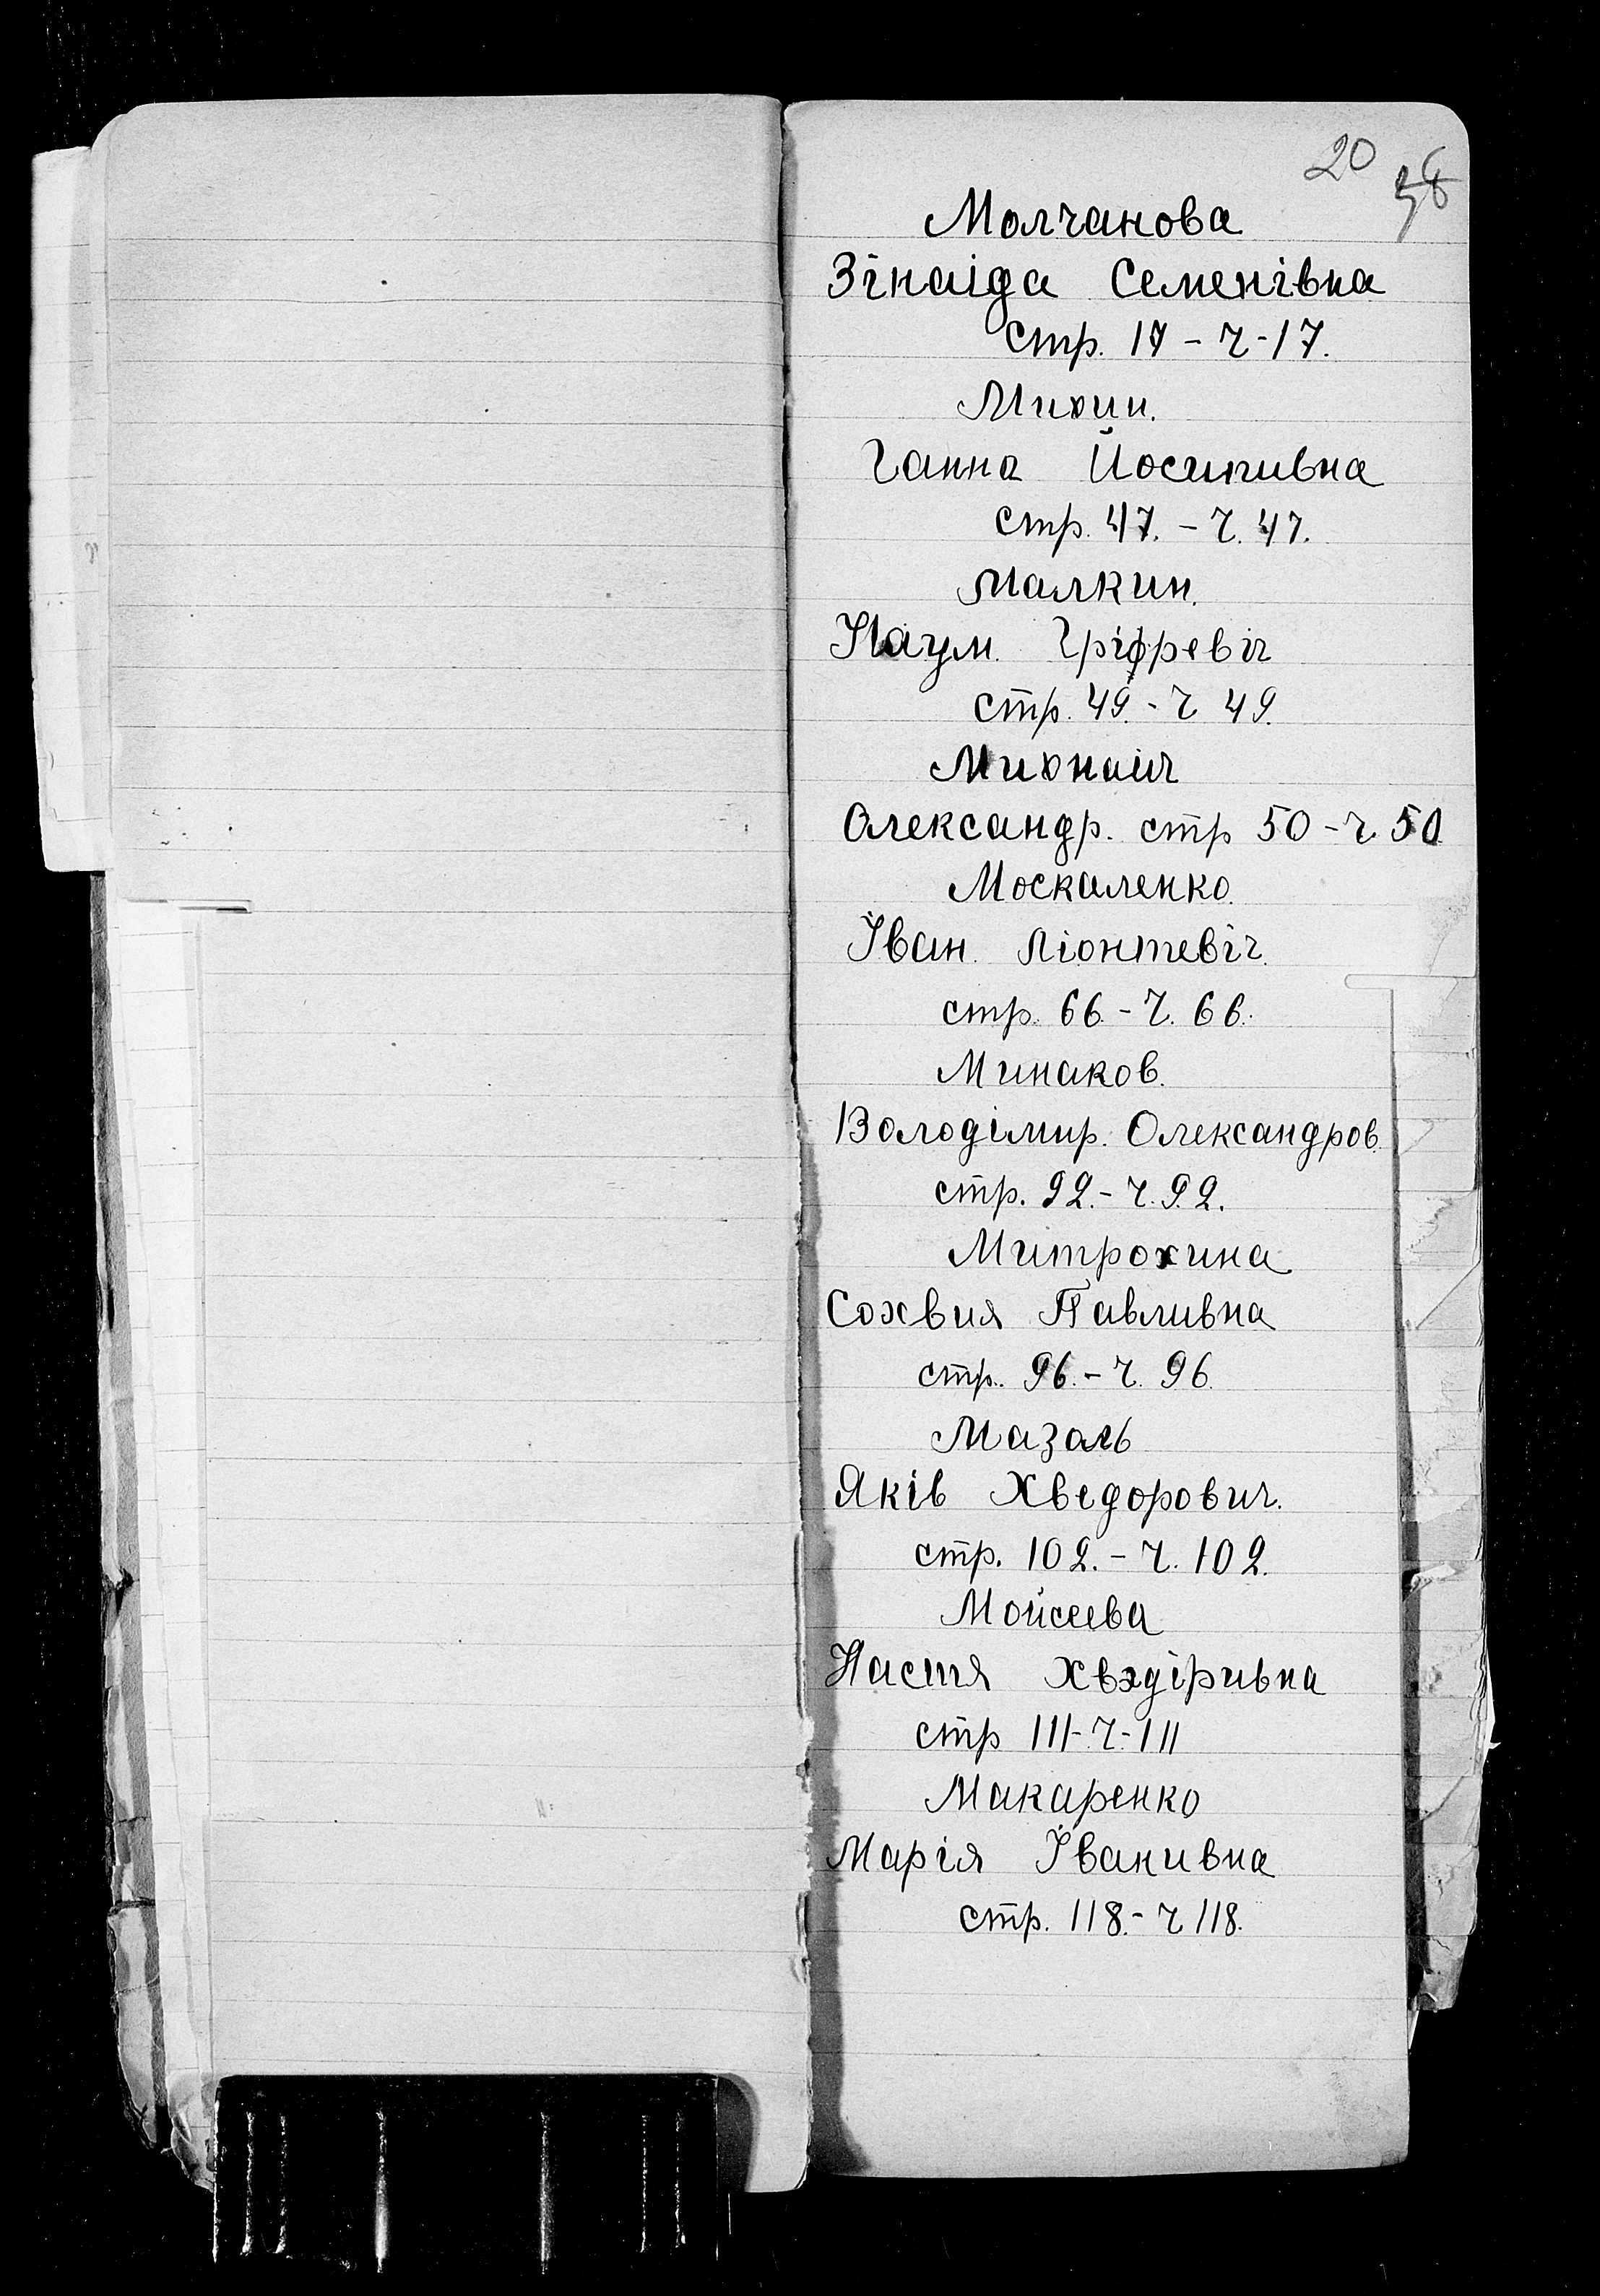 20
Молчанова
Зінаіда Семенівна
стр. 17 - ч - 17.
Михин.
Ганна Йосипивна
стр. 47. - ч. 47.
Малкин.
Наум Гріфревіч
стр. 49. - ч 49.
Михнаич
Олександр. стр 50 - ч 50
Москаленко.
Іван Ліонтевіч.
стр. 66. - ч. 66.
Минаков.
Володімир. Олександров.
стр. 92. - ч. 92.
Митрохина
Сохвия Павливна
стр. 96. - ч. 96.
Мазаль
Яків Хведорович.
стр. 102. - ч. 102.
Мойсеева
Настя Хвэдіривна
стр 111 - ч - 111
Макаренко
Марія Іванивна
стр. 118. - ч 118.